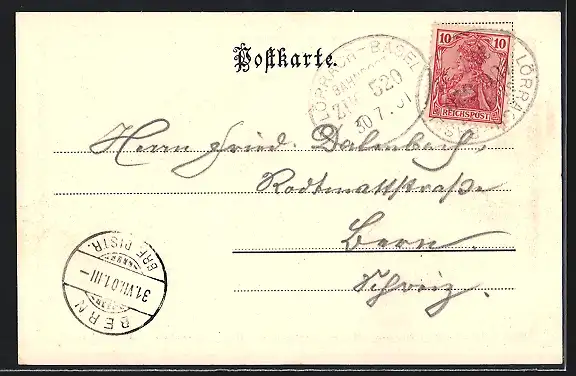 Postkarte.
LÖRRACH-BASEL
BAHNPOST
ZUG 520
30 7. 01
10 10
REICHSPOST
LÖRRACH
Herrn Fried. Dalenbach,
Rodtmattstraße
Bern.
Schweiz.
BRF. DISTR.
31.VII.01.III-
BERN